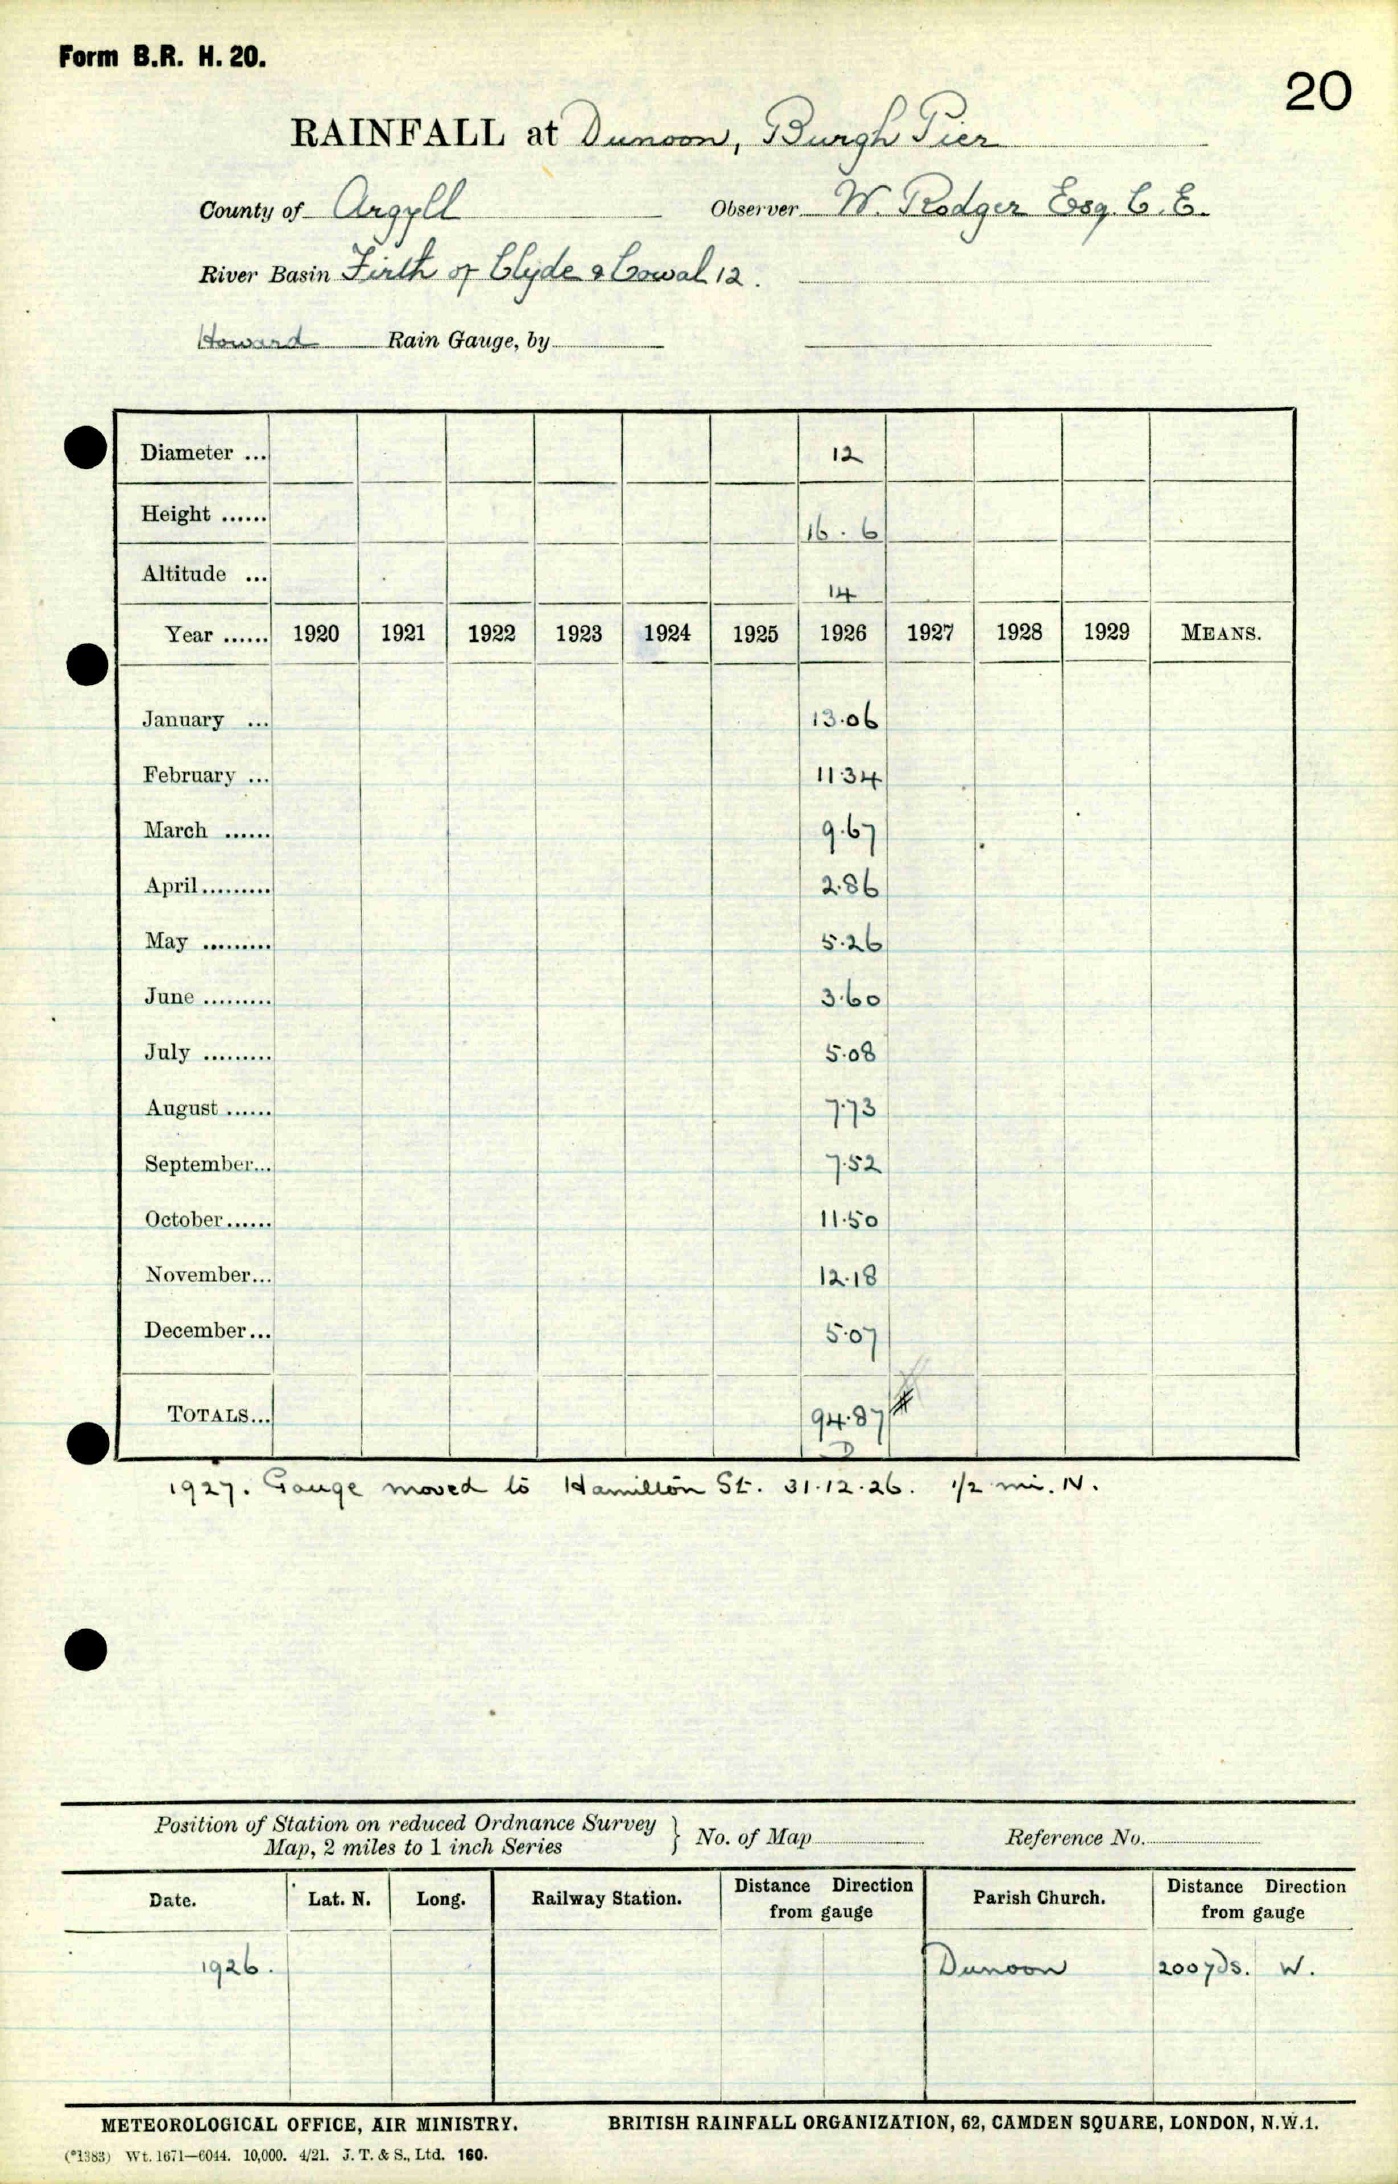 Form B.R. H. 20.
20
RAINFALL at Dunoon, Burgh Pier
County of Argyll Observer W. Rodger Esq. C.E.
River Basin Firth of Clyde & Cowal 12.
Howard Rain Gauge, by
Diameter ... 12
Height ...... 16 . 6
Altitude ... 14
Year ...... 1920 1921 1922 1923 1924 1925 1926 1927 1928 1929 MEANS.
January ... 13.06
February ... 11.34
March ...... 9.67
April......... 2.86
May ......... 5.26
June ......... 3.60
July ......... 5.08
August ...... 7.73
September... 7.52
October...... 11.50
November... 12.18
December... 5.07
TOTALS... 94.87
D
1927. Gauge moved to Hamilton St. 31.12.26. 1/2 mi. N.
Position of Station on reduced Ordnance Survey
Map, 2 miles to 1 inch Series } No. of Map Reference No.
Date. Lat. N. Long. Railway Station. Distance Direction from gauge Parish Church. Distance Direction from gauge
1926. Dunoon 200 yds. W.
METEOROLOGICAL OFFICE, AIR MINISTRY. BRITISH RAINFALL ORGANIZATION, 62, CAMDEN SQUARE, LONDON, N.W.1.
(*1383) Wt. 1671—6044. 10,000. 4/21. J. T. & S., Ltd. 160.